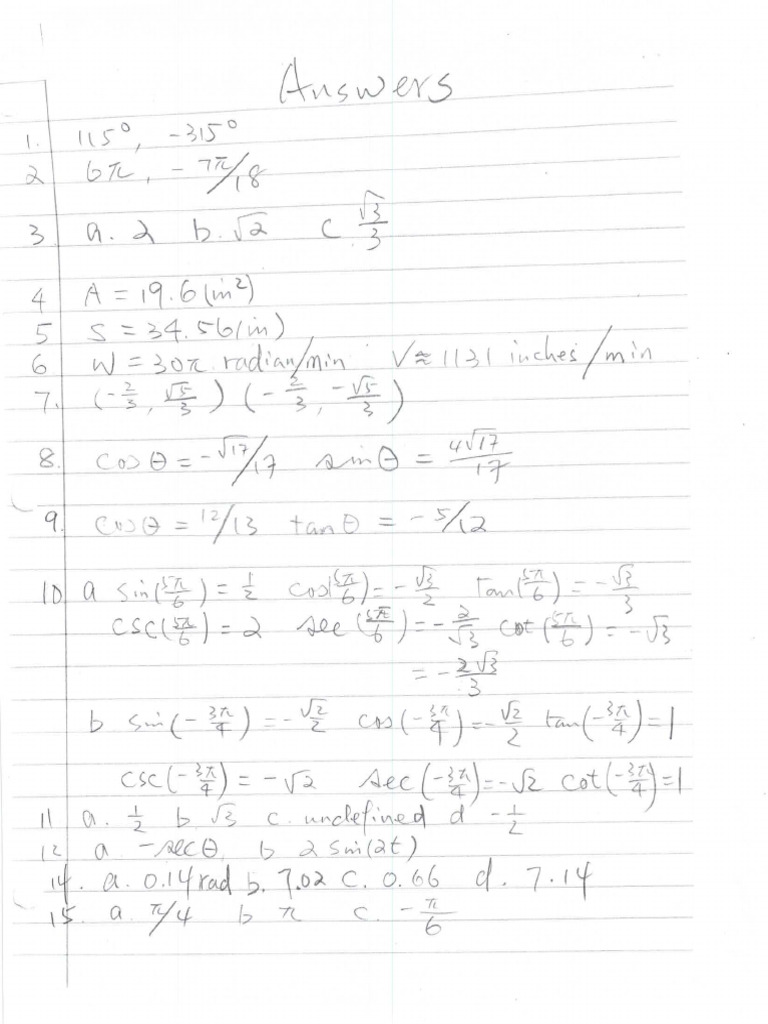 Answers
1. 115°, -315°
2 6π, -7π/18
3 a. 2 b. √2 c √3/3
4 A = 19.6 (in²)
5 S = 34.56 (in)
6 W = 30π radian/min V ≈ 1131 inches/min
7. (-2/3, √5/3) (-2/3, -√5/3)
8. cos θ = -√17/17 sin θ = 4√17/17
9. cos θ = 12/13 tan θ = -5/12
10 a sin(5π/6) = 1/2 cos(5π/6) = -√3/2 tan(5π/6) = -√3/3
csc(5π/6) = 2 sec(5π/6) = -2/√3 cot(5π/6) = -√3
= -2√3/3
b sin(-3π/4) = -√2/2 cos(-3π/4) = -√2/2 tan(-3π/4) = 1
csc(-3π/4) = -√2 sec(-3π/4) = -√2 cot(-3π/4) = 1
11 a. 1/2 b √3 c. undefined d -1/2
12 a -secθ b 2 sin(2t)
14. a. 0.14 rad b. 7.02 c. 0.66 d. 7.14
15. a. π/4 b π c. -π/6